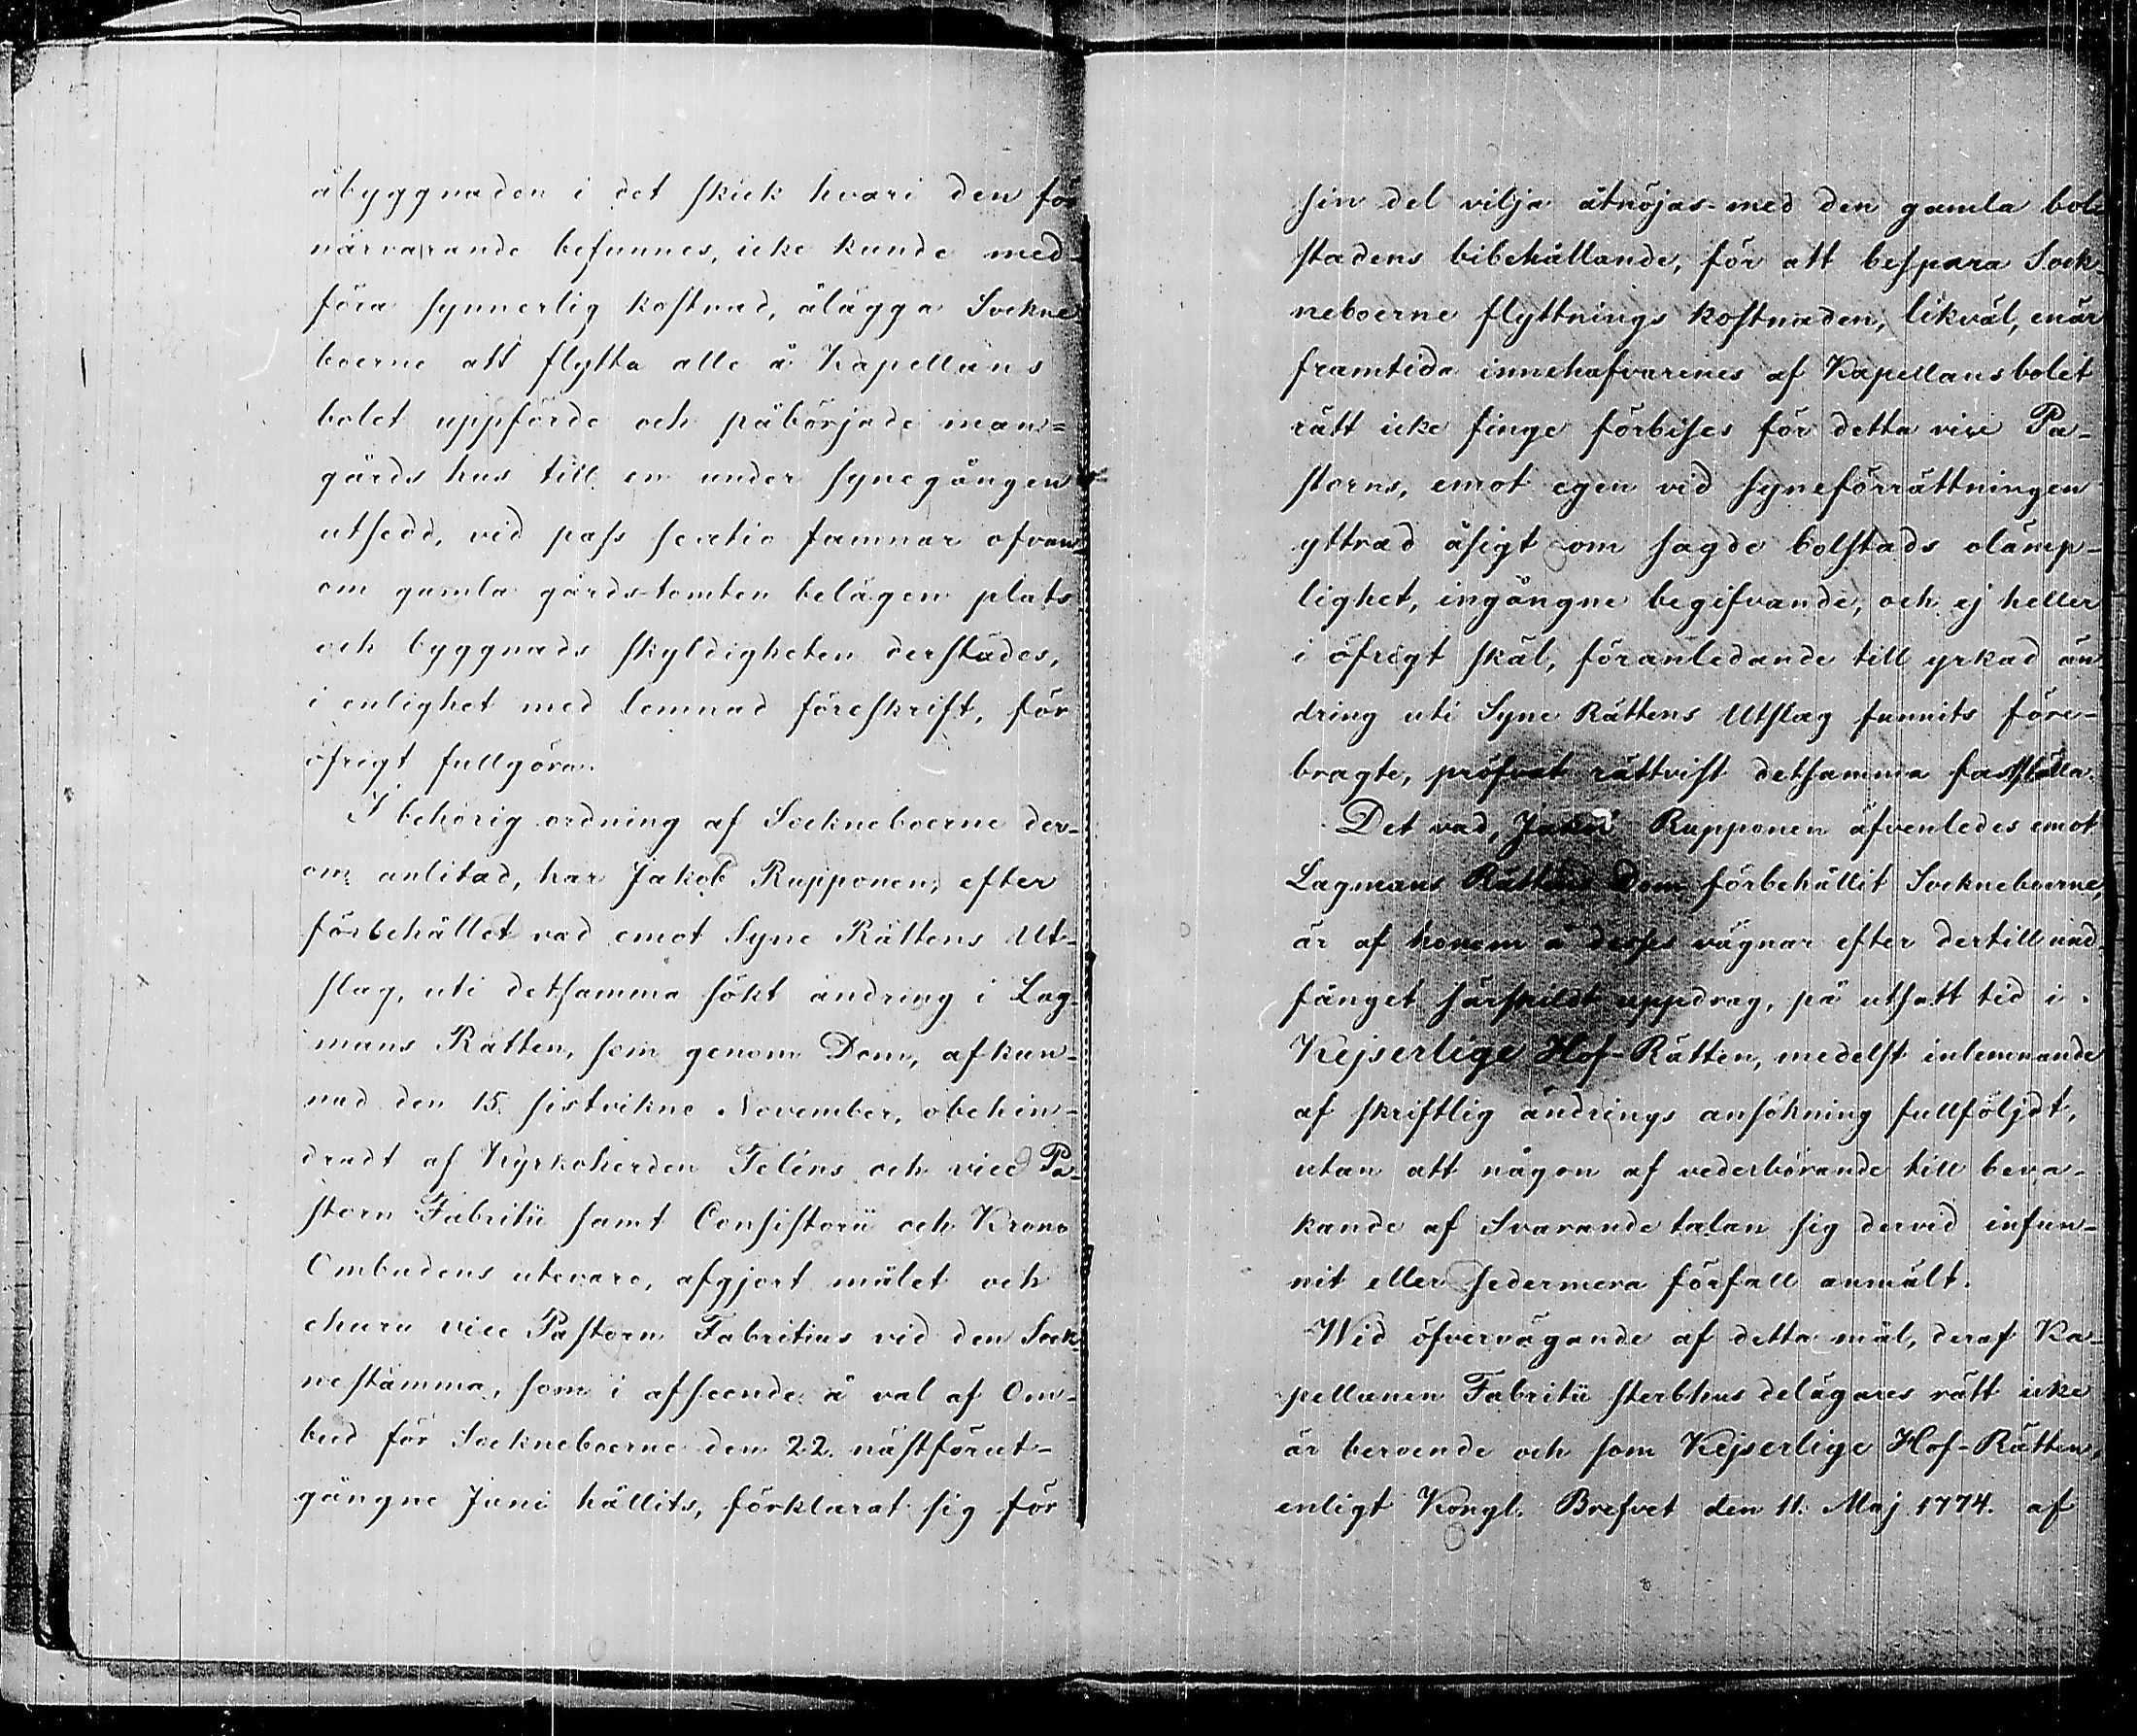 åbyggnaden i det skick hvari den för
närvarande befunnes, icke kunde med-
föra synnerlig kostnad, ålägga Sockne
boerne att flytta alle å Kapellans
bolet uppförde och påbörjade man-
gårds hus till en under synegången
utsedd, vid pass sextio famnar ofvan
om gamla gårds-tomten belägen plats
och byggnads skyldigheten derstädes,
i enlighet med lemnad föreskrift, för
öfrigt fullgöra.
I behörig ordning af Sockneboerne der-
om anlitad, har Jakob Rupponen, efter
förbehållet vad emot Syne Rättens Ut-
slag, uti detsamma sökt ändring i Lag-
mans Rätten, som genom Dom, afkun-
nad den 15. sistvikne November, obehin-
dradt af Kyrkoherden Feléns och vice Pa-
storn Fabritii samt Consistorii och Krono
Ombudens utevaro, afgjort målet och
ehuru vice Pastorn Fabritius vid den Sock-
nestämma, som i afseende å val af Om-
bud för Sockneboerne den 22. nästförut-
gångne Juni hållits, förklarat sig för
sin del vilja åtnöjas med den gamla bol-
stadens bibehållande, för att bespara Sock-
neboerne flyttnings kostnaden, likväl, enär
framtida innehafvarenes af Kapellansbolet
rätt icke finge förbises för detta vice Pa-
storns, emot egen vid syneförrättningen
yttrad åsigt om sagde bolstads olämp-
lighet, ingångne begifvande, och ej heller
i öfrigt skäl, föranledande till yrkad än-
dring uti Syne Rättens Utslag funnits före-
bragte, pröfvat rättvist detsamma fastställa.
Det vad, Rupponen äfvenledes emot
Lagmans Rättens Dom förbehållit Sockneboerne,
är af honom å desses vägnar efter dertill und-
fånget särskildt uppdrag, på utsatt tid i
Kejserlige Hof-Rätten, medelst inlemnande
af skriftlig ändrings ansökning fullföljdt,
utan att någon af vederbörande till beva-
kande af Svarande talan sig dervid infun-
nit eller sedermera förfall anmält.
Wid öfvervägande af detta mål, deraf Ka-
pellanen Fabritii sterbhus delägares rätt icke
är beroende och som Kejserlige Hof-Rätten,
enligt Kongl. Brefvet den 11. Maj 1774. af